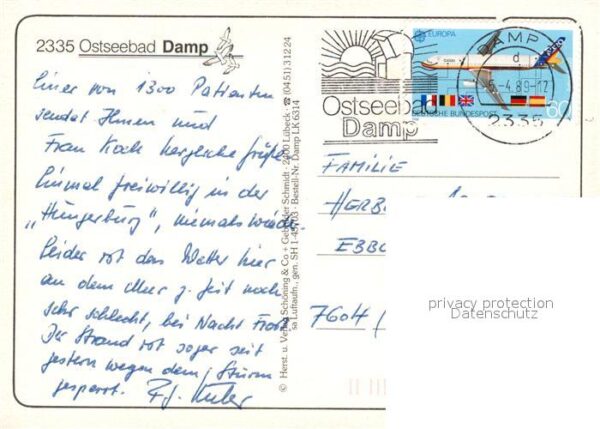 2335 Ostseebad Damp
Einer von 1300 Patienten
sendet Ihnen und
Frau Koch herzliche Grüße.
Einmal freiwillig in der
„Hungerburg", niemals wieder.
Leider ist das Wetter hier
an dem Meer z. Zeit noch
sehr schlecht, bei Nacht Frost.
Der Strand ist sogar seit
gestern wegen dem Sturm
gesperrt.
© Herst. u. Verlag Schöning & Co + Gebrüder Schmidt · 2400 Lübeck · ☎ (0451) 31224
sa Luftaufn., gen. SH 1-45/103 · Bestell-Nr. Damp LK 6314
EUROPA
60
DEUTSCHE BUNDESPOST
Ostseebad
Damp
DAMP
d
-4.89-12
2335
FAMILIE
HERB
EBBO
7604
privacy protection
Datenschutz